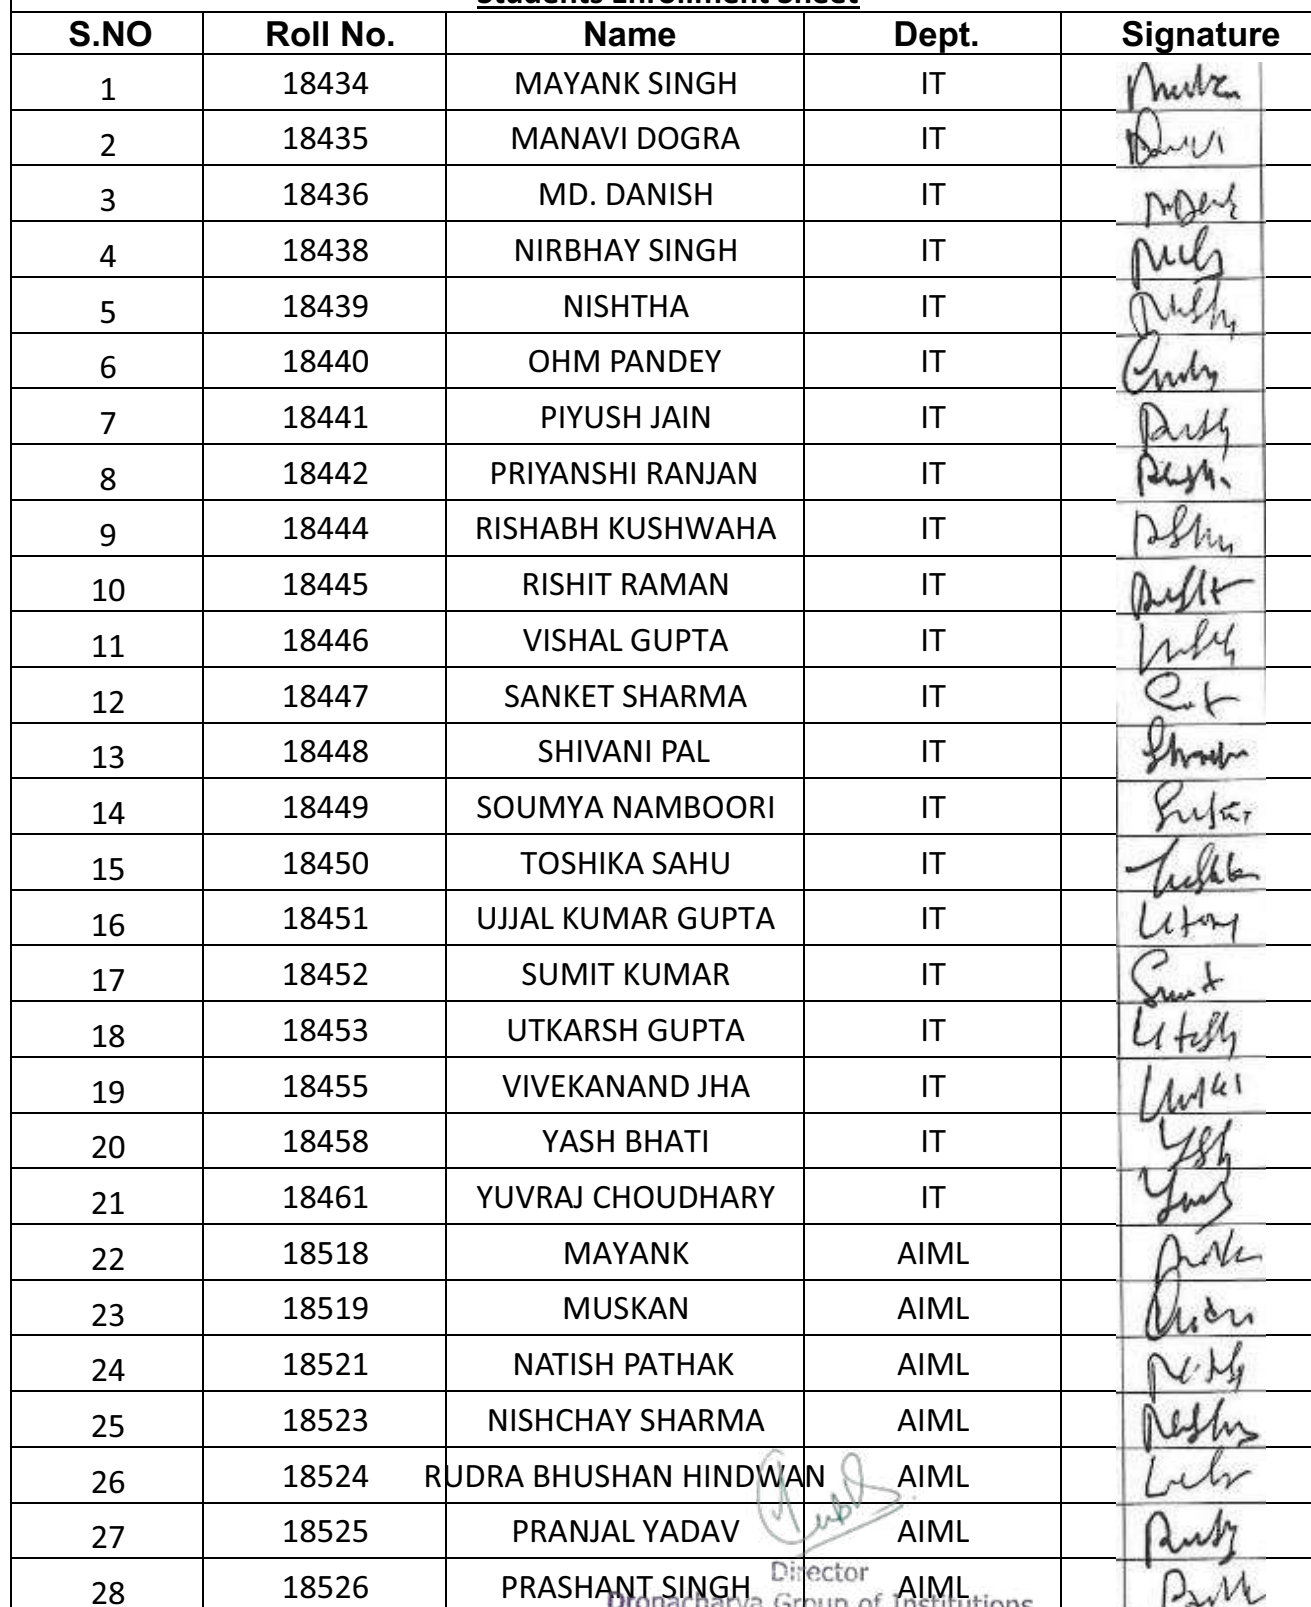 Students Enrollment Sheet
S.NO Roll No. Name Dept. Signature
1 18434 MAYANK SINGH IT
2 18435 MANAVI DOGRA IT
3 18436 MD. DANISH IT
4 18438 NIRBHAY SINGH IT
5 18439 NISHTHA IT
6 18440 OHM PANDEY IT
7 18441 PIYUSH JAIN IT
8 18442 PRIYANSHI RANJAN IT
9 18444 RISHABH KUSHWAHA IT
10 18445 RISHIT RAMAN IT
11 18446 VISHAL GUPTA IT
12 18447 SANKET SHARMA IT
13 18448 SHIVANI PAL IT
14 18449 SOUMYA NAMBOORI IT
15 18450 TOSHIKA SAHU IT
16 18451 UJJAL KUMAR GUPTA IT
17 18452 SUMIT KUMAR IT
18 18453 UTKARSH GUPTA IT
19 18455 VIVEKANAND JHA IT
20 18458 YASH BHATI IT
21 18461 YUVRAJ CHOUDHARY IT
22 18518 MAYANK AIML
23 18519 MUSKAN AIML
24 18521 NATISH PATHAK AIML
25 18523 NISHCHAY SHARMA AIML
26 18524 RUDRA BHUSHAN HINDWAN AIML
27 18525 PRANJAL YADAV AIML
Director
28 18526 PRASHANT SINGH AIML
Dronacharya Group of Institutions